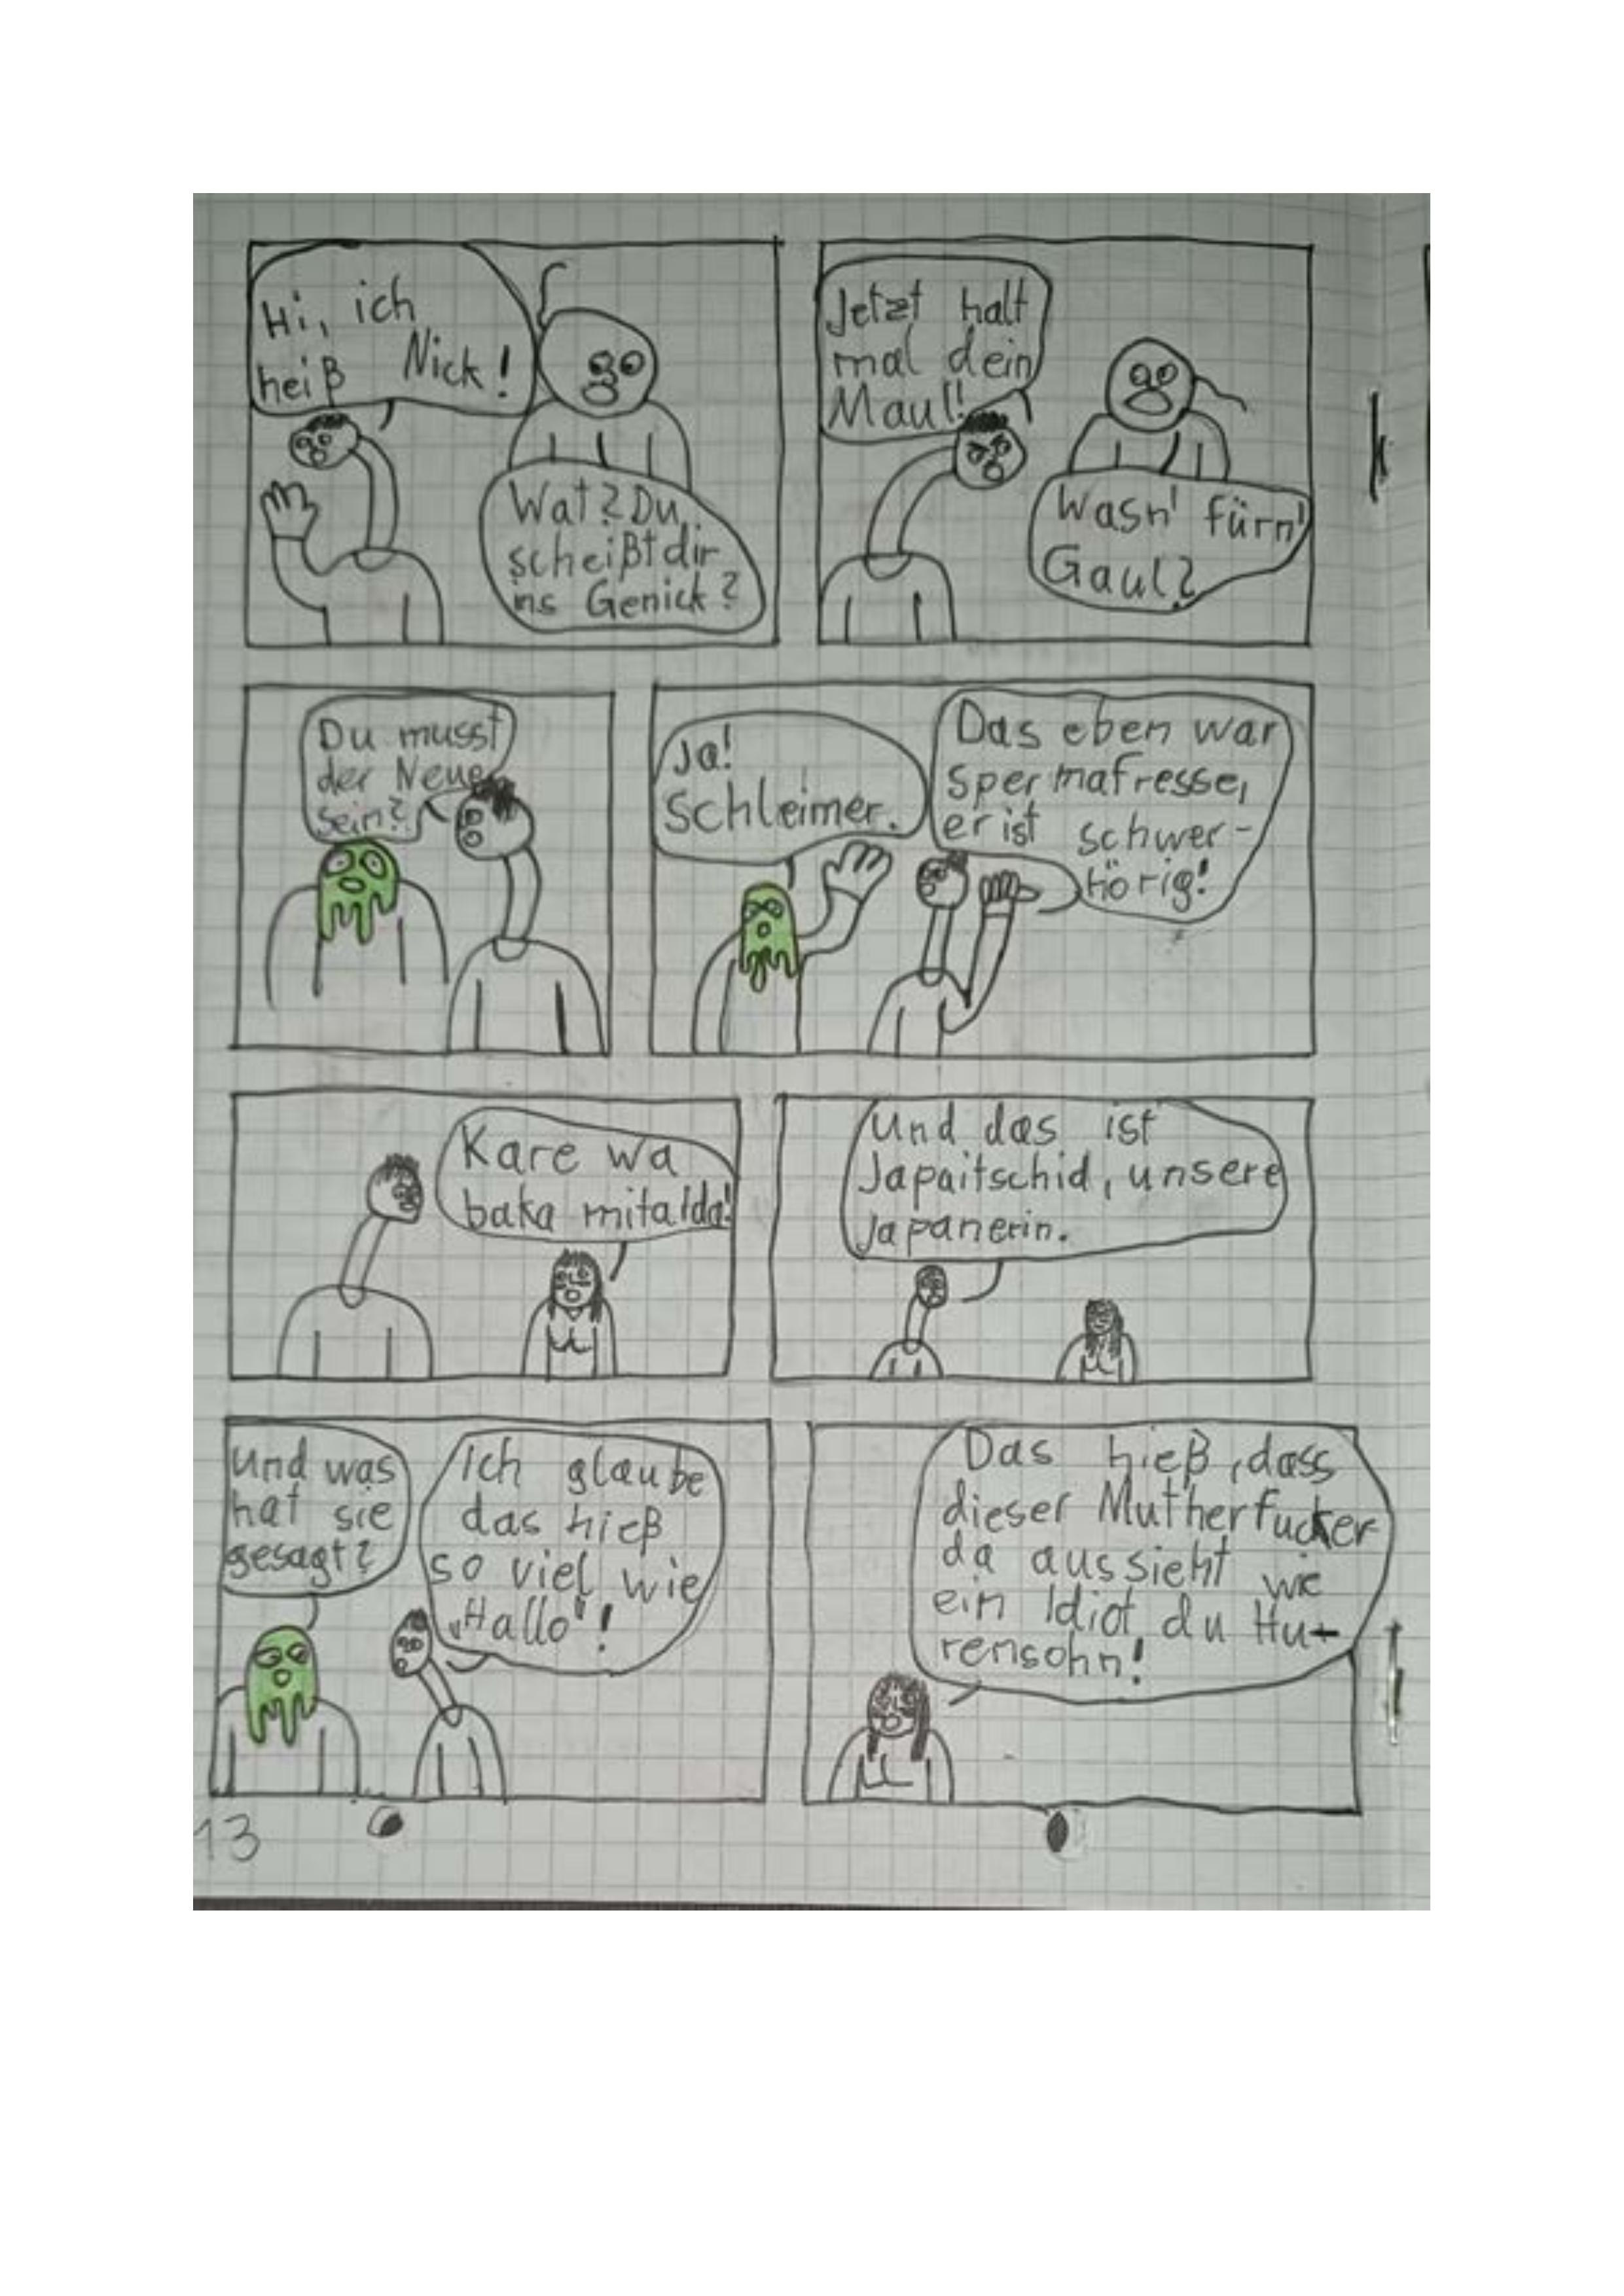 Hi, ich
heiß Nick!
Wat? Du
scheißt dir
ins Genick?
Jetzt halt
mal dein
Maul!
Wasn' fürn'
Gaul?
Du musst
der Neue
sein?
Ja!
Schleimer.
Das eben war
Spermafresse,
er ist schwer-
hörig!
Kare wa
baka mitaida!
Und das ist
Japaitschid, unsere
Japanerin.
Und was
hat sie
gesagt?
Ich glaube
das hieß
so viel wie
„Hallo"!
Das hieß, dass
dieser Mutherfucker
da aussieht wie
ein Idiot, du Hu-
rensohn!
13